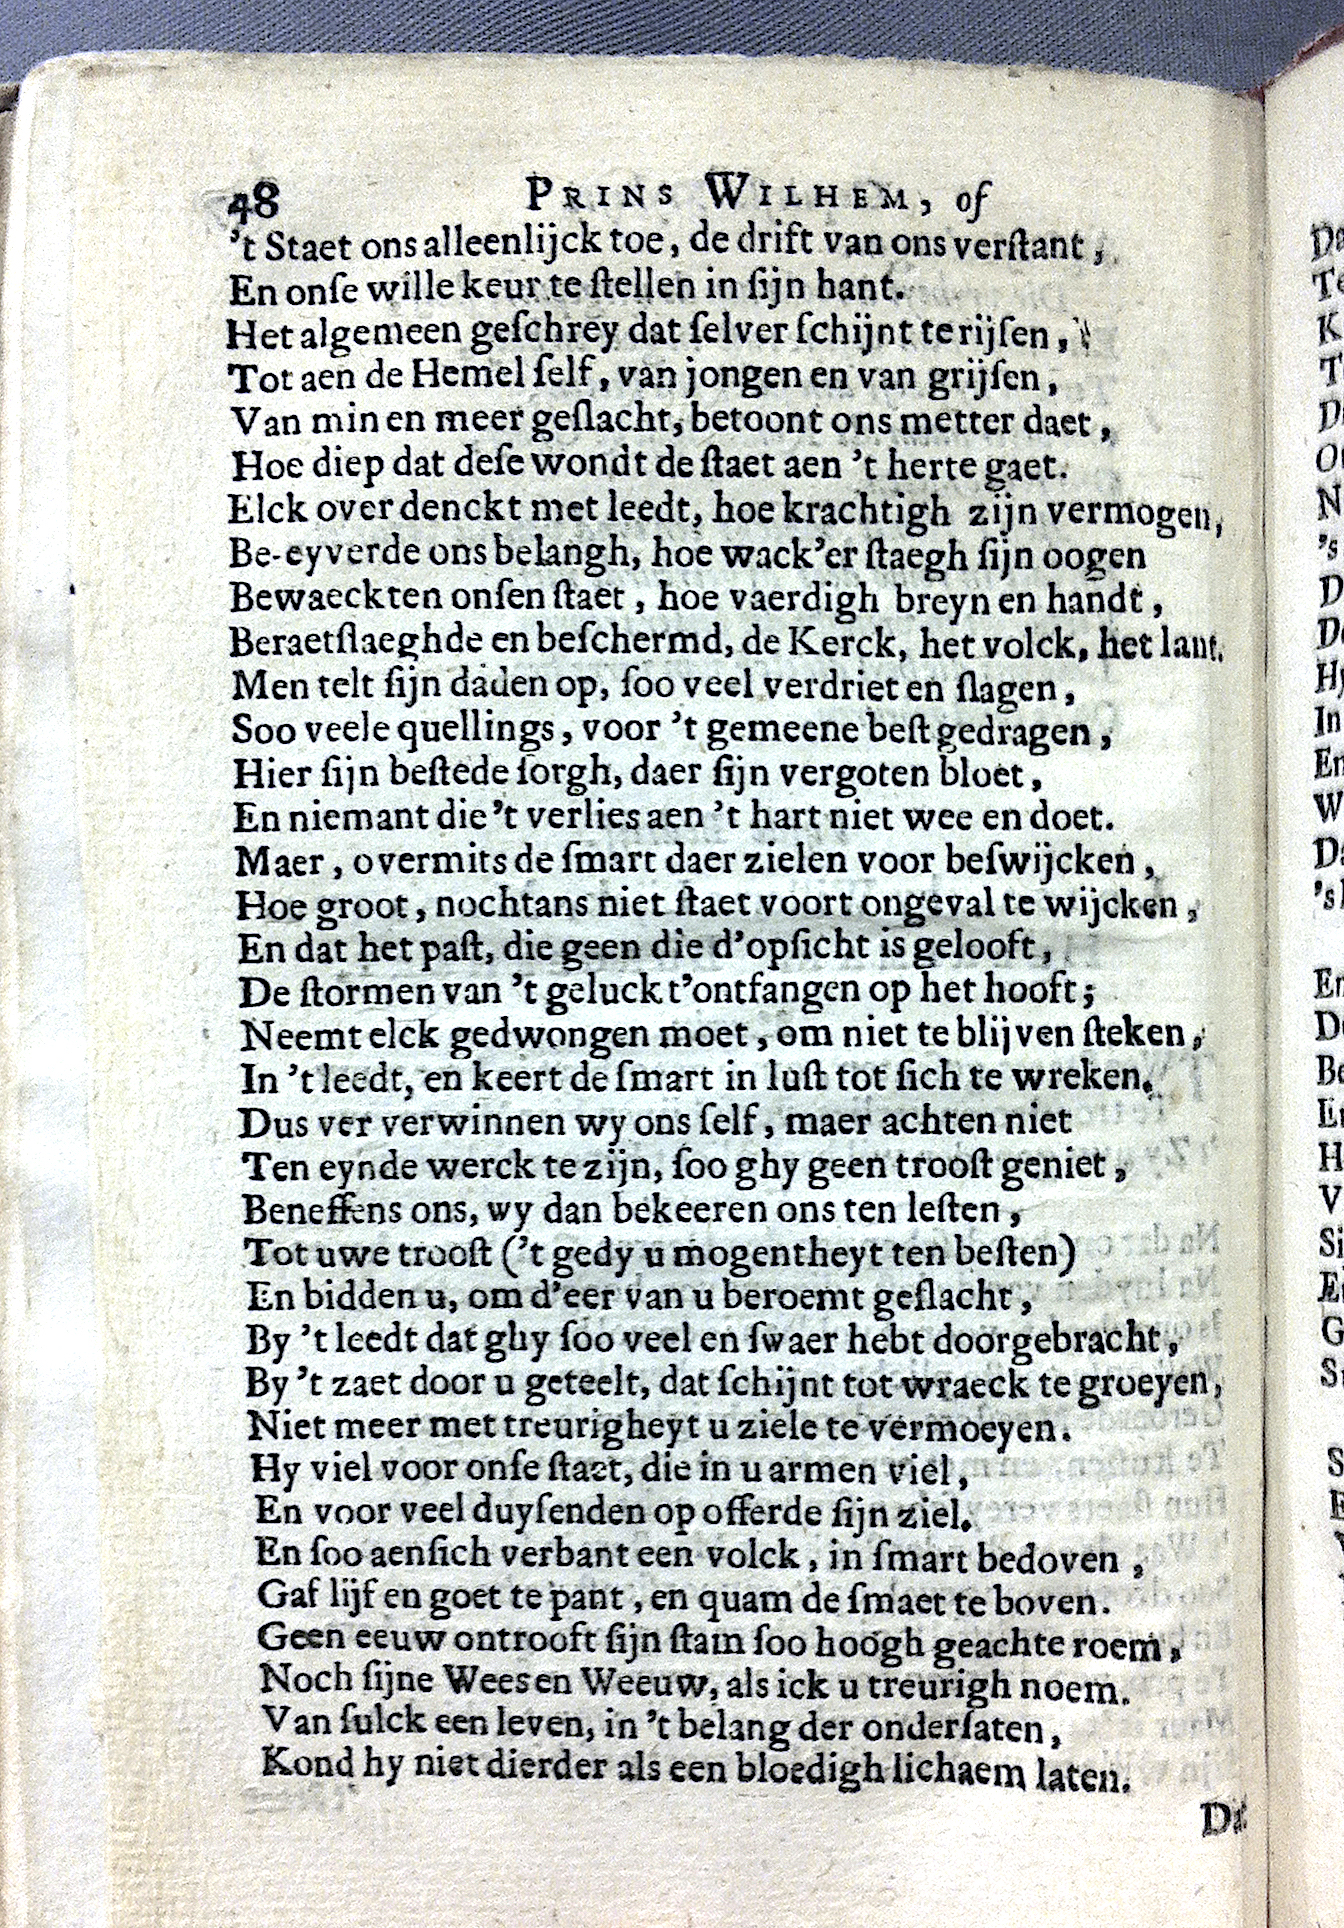 48 PRINS WILHEM, of
't Staet ons alleenlijck toe, de drift van ons verſtant,
En onſe wille keur te ſtellen in ſijn hant.
Het algemeen geſchrey dat ſelver ſchijnt te rijſen,
Tot aen de Hemel ſelf, van jongen en van grijſen,
Van min en meer geſlacht, betoont ons metter daet,
Hoe diep dat deſe wondt de ſtaet aen 't herte gaet.
Elck over denckt met leedt, hoe krachtigh zijn vermogen,
Be-eyverde ons belangh, hoe wack'er ſtaegh ſijn oogen
Bewaeckten onſen ſtaet, hoe vaerdigh breyn en handt,
Beraetſlaeghde en beſchermd, de Kerck, het volck, het lant.
Men telt ſijn daden op, ſoo veel verdriet en ſlagen,
Soo veele quellings, voor 't gemeene beſt gedragen,
Hier ſijn beſtede ſorgh, daer ſijn vergoten bloet,
En niemant die 't verlies aen 't hart niet wee en doet.
Maer, overmits de ſmart daer zielen voor beſwijcken,
Hoe groot, nochtans niet ſtaet voort ongeval te wijcken,
En dat het paſt, die geen die d'opſicht is gelooft,
De ſtormen van 't geluck t'ontfangen op het hooft;
Neemt elck gedwongen moet, om niet te blijven ſteken,
In 't leedt, en keert de ſmart in luſt tot ſich te wreken.
Dus ver verwinnen wy ons ſelf, maer achten niet
Ten eynde werck te zijn, ſoo ghy geen trooſt geniet,
Beneffens ons, wy dan bekeeren ons ten leſten,
Tot uwe trooſt ('t gedy u mogentheyt ten beſten)
En bidden u, om d'eer van u beroemt geſlacht,
By 't leedt dat ghy ſoo veel en ſwaer hebt doorgebracht,
By 't zaet door u geteelt, dat ſchijnt tot wraeck te groeyen,
Niet meer met treurigheyt u ziele te vermoeyen.
Hy viel voor onſe ſtaet, die in u armen viel,
En voor veel duyſenden op offerde ſijn ziel.
En ſoo aenſich verbant een volck, in ſmart bedoven,
Gaf lijf en goet te pant, en quam de ſmaet te boven.
Geen eeuw ontrooft ſijn ſtam ſoo hoogh geachte roem,
Noch ſijne Wees en Weeuw, als ick u treurigh noem.
Van ſulck een leven, in 't belang der onderſaten,
Kond hy niet dierder als een bloedigh lichaem laten.